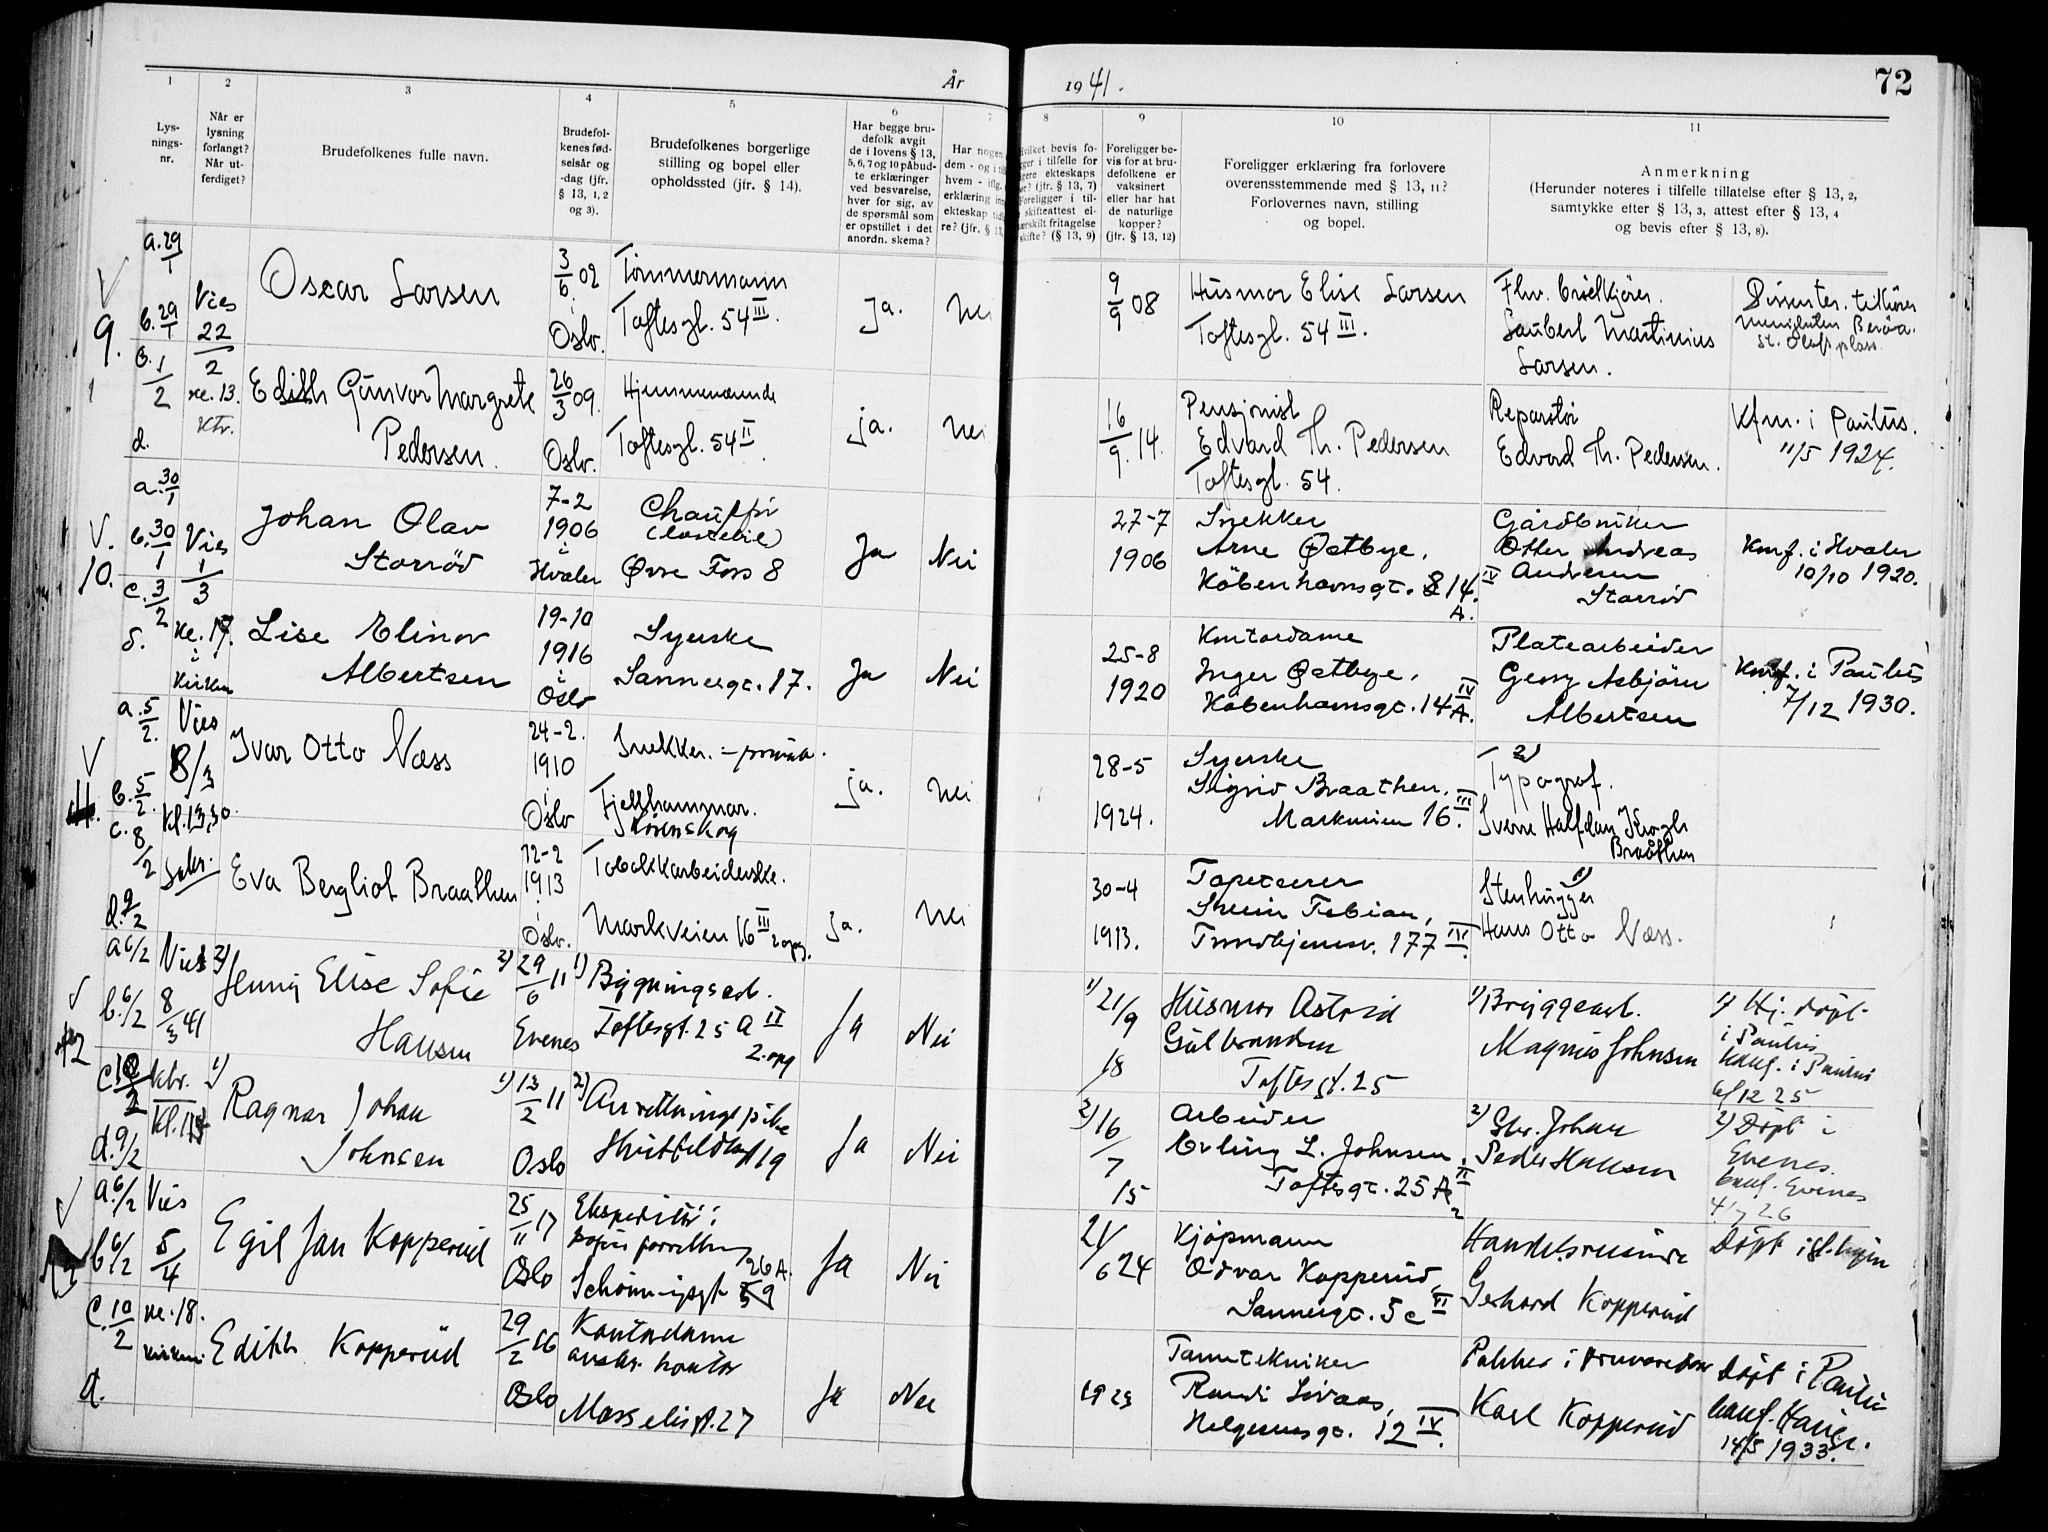 År 1941.
72
1 2 3 4 5 6 7 8 9 10 11
Lys-
nings-
nr.
Når er
lysning
forlangt?
Når ut-
ferdiget?
Brudefolkenes fulle navn.
Brudefol-
kenes fød-
selsår og
-dag (jfr.
§ 13, 1, 2
og 3).
Brudefolkenes borgerlige
stilling og bopel eller
opholdssted (jfr. § 14).
Har begge bru-
defolk avgit
de i lovens § 13,
5, 6, 7 og 10 påbud-
te erklæringer
ved besvarelse,
hver for sig, av
de spørsmål som
er opstillet i det
anordn. skema?
Har nogen
dem - og i
hvem - ifig.
erklæring
ekteskap
re? (jfr. § 13,
Hvilket bevis fo-
i tilfelle for
ekteskaps
(jfr. § 13, 7)
Foreligger i til-
skifteattest el-
særskilt fritagelse
skifte? (§ 13, 9)
Foreligger be-
vis for at bru-
defolkene er
vaksinert
eller har hat
de naturlige
kopper?
(jfr. § 13, 12)
Foreligger erklæring fra forlovere
overensstemmende med § 13, 11?
Forlovernes navn, stilling
og bopel.
Anmerkning
(Herunder noteres i tilfelle tillatelse efter § 13, 2,
samtykke efter § 13, 3, attest efter § 13, 4
og bevis efter § 13, 8).
9.
a. 29/1
b. 29/1
c. 1/2
d.
Vies
22/2
kl. 13.
Ktr.
Oscar Larsen
3/6 02
i
Oslo.
Tømmermann
Toftesgt. 54 III.
Ja.
Nei
9/9 08
Husmor Elise Larsen
Toftesgt. 54 III.
Fhv.
Martinius
Larsen.
Dissenter. tilhører
menigheten Berøa.
St. Olafs plass.
Edith Gunvor Margrete
Pedersen.
26/3 09.
Oslo.
Hjemmeværende
Toftesgt. 54 II.
Ja.
Nei
16/9. 14.
Pensjonist
Edvard Th. Pedersen
Toftesgt. 54.
Reparatør
Edvard Th. Pedersen.
Kfm. i Paulus.
11/5 1924.
V.
10.
a. 30/1
b. 30/1
c. 3/2
d.
Vies
1/3
kl. 17.
i
kirken
Johan Olav
Storrød
7-2
1906
i
Hvaler
Chauffør
(lastebil)
Øvre Foss 8
Ja
Nei
27-7
1906
Snekker
Arne Østbye,
Københavnsgt. 14 IV
A.
Gårdbruker
Otter Andreas
Andersen
Storrød
Konf. i Hvaler
10/10 1920.
Lise Elinor
Albertsen
19-10
1916
i
Oslo
Syerske
Sannergt. 17.
Ja
Nei
25-8
1920
Kontordame
Inger Østbye,
Københavnsgt. 14 IV
A.
Platearbeider
Georg Asbjørn
Albertsen
Konf. i Paulus
7/12 1930.
11.
a. 5/2.
b. 5/2.
c. 8/2
d. 9/2
Vies
8/3
Kl. 13,30.
Sakr.
Ivar Otto Næss
24-2.
1910
i
Oslo
Snekker.
Fjellhammar.
Lørenskog
Ja.
Nei
28-5
1924.
Syerske
Sigrid Braathen,
Markveien 16. III
2)
Typograf.
Sverre Halfdan Krogh
Braathen
Eva Bergliot Braathen
12-2
1913
i
Oslo.
Tobakkarbeiderske.
Markveien 16 III 2 opg.
Ja.
Nei
30-4
1913.
Tapetserer
Fabian,
Trondhjemsv. 177 IV.
1)
Stenhugger
Hans Otto Næss.
12
a 6/2
b. 6/2
c. 10/2
d. 9/2
Vies
8/3 41
Ktr.
Kl. 13
2) Jenny Elise Sofie
Hansen
2) 29/6 11
Evenes
1) Bygningsarb.
Toftesgt. 25 A II
2. opg
Ja
Nei
1) 21/9
18
Husmor Astrid
Gulbrandsen
Toftesgt. 25
1) Bryggearb.
Magnus Johnsen
1) Hj. døpt
i Paulus
konf. i Paulus
6/12 25
1) Ragnar Johan
Johnsen
1) 13/2 11
Oslo
2) Anretningspike
Huitfeldtsgt 19
Ja
Nei
2) 16/7
15
Arbeider
Erling L. Johnsen,
Toftesgt. 25 A II
2
2) Gbr. Johan
Peder Hansen
2) Døpt i
Evenes.
konf. Evenes
4/7 26
13
a. 6/2
b 6/2
c. 10/2
d.
Vies
5/4
kl. 18.
kirken.
Egil Jan Kopperud
25/11 17
Oslo
Ekspeditør i
papirforretning
Schønningsgt 26 A.
Ja
Nei
21/6 24
Kjøpmann
Odvar Kopperud,
Sannergt. 5 c VI
Handelsreisende
Gerhard Kopperud
Døpt i
Edith Kopperud
29/2 16
Oslo
Kontordame
kontor
Ja
Nei
1923
Tanntekniker
Randi
Helgesensgt. 12 IV.
Pakker i
Karl Kopperud
Døpt i Paulus
konf. Hauge.
14/5 1933.